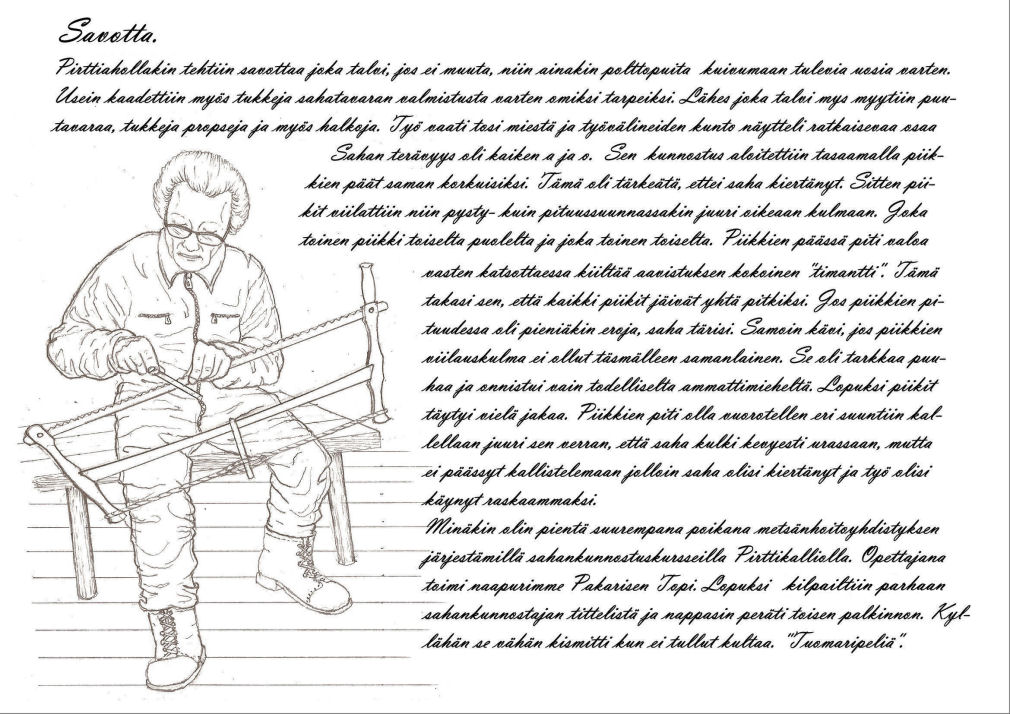 Savotta.
Pirttiahollakin tehtiin savottaa joka talvi, jos ei muuta, niin ainakin polttopuita kuivumaan tulevia uosia varten.
Usein kaadettiin myös tukkeja sahatavaran valmistusta varten omiksi tarpeiksi. Lähes joka talvi mys myytiin puu-
tavaraa, tukkeja propseja ja myös halkoja. Työ vaati tosi miestä ja työvälineiden kunto näytteli ratkaisevaa osaa
Sahan terävyys oli kaiken a ja o. Sen kunnostus aloitettiin tasaamalla piik-
kien päät saman korkuisiksi. Tämä oli tärkeätä, ettei saha kiertänyt. Sitten pii-
kit viilattiin niin pysty- kuin pituussuunnassakin juuri oikeaan kulmaan. Joka
toinen piikki toiselta puolelta ja joka toinen toiselta. Piikkien päässä piti valoa
vasten katsottaessa kiiltää aavistuksen kokoinen "timantti". Tämä
takasi sen, että kaikki piikit jäivät yhtä pitkiksi. Jos piikkien pi-
tuudessa oli pieniäkin eroja, saha tärisi. Samoin kävi, jos piikkien
viilauskulma ei ollut täsmälleen samanlainen. Se oli tarkkaa puu-
haa ja onnistui vain todelliselta ammattimieheltä. Lopuksi piikit
täytyi vielä jakaa. Piikkien piti olla vuorotellen eri suuntiin kal-
lellaan juuri sen verran, että saha kulki kevyesti urassaan, mutta
ei päässyt kallistelemaan jolloin saha olisi kiertänyt ja työ olisi
käynyt raskaammaksi.
Minäkin olin pientä suurempana poikana metsänhoitoyhdistyksen
järjestämillä sahankunnostuskursseilla Pirttikalliolla. Opettajana
toimi naapurimme Pakarisen Topi. Lopuksi kilpailtiin parhaan
sahankunnostajan tittelistä ja nappasin peräti toisen palkinnon. Kyl-
lähän se vähän kismitti kun ei tullut kultaa. "Tuomaripeliä".